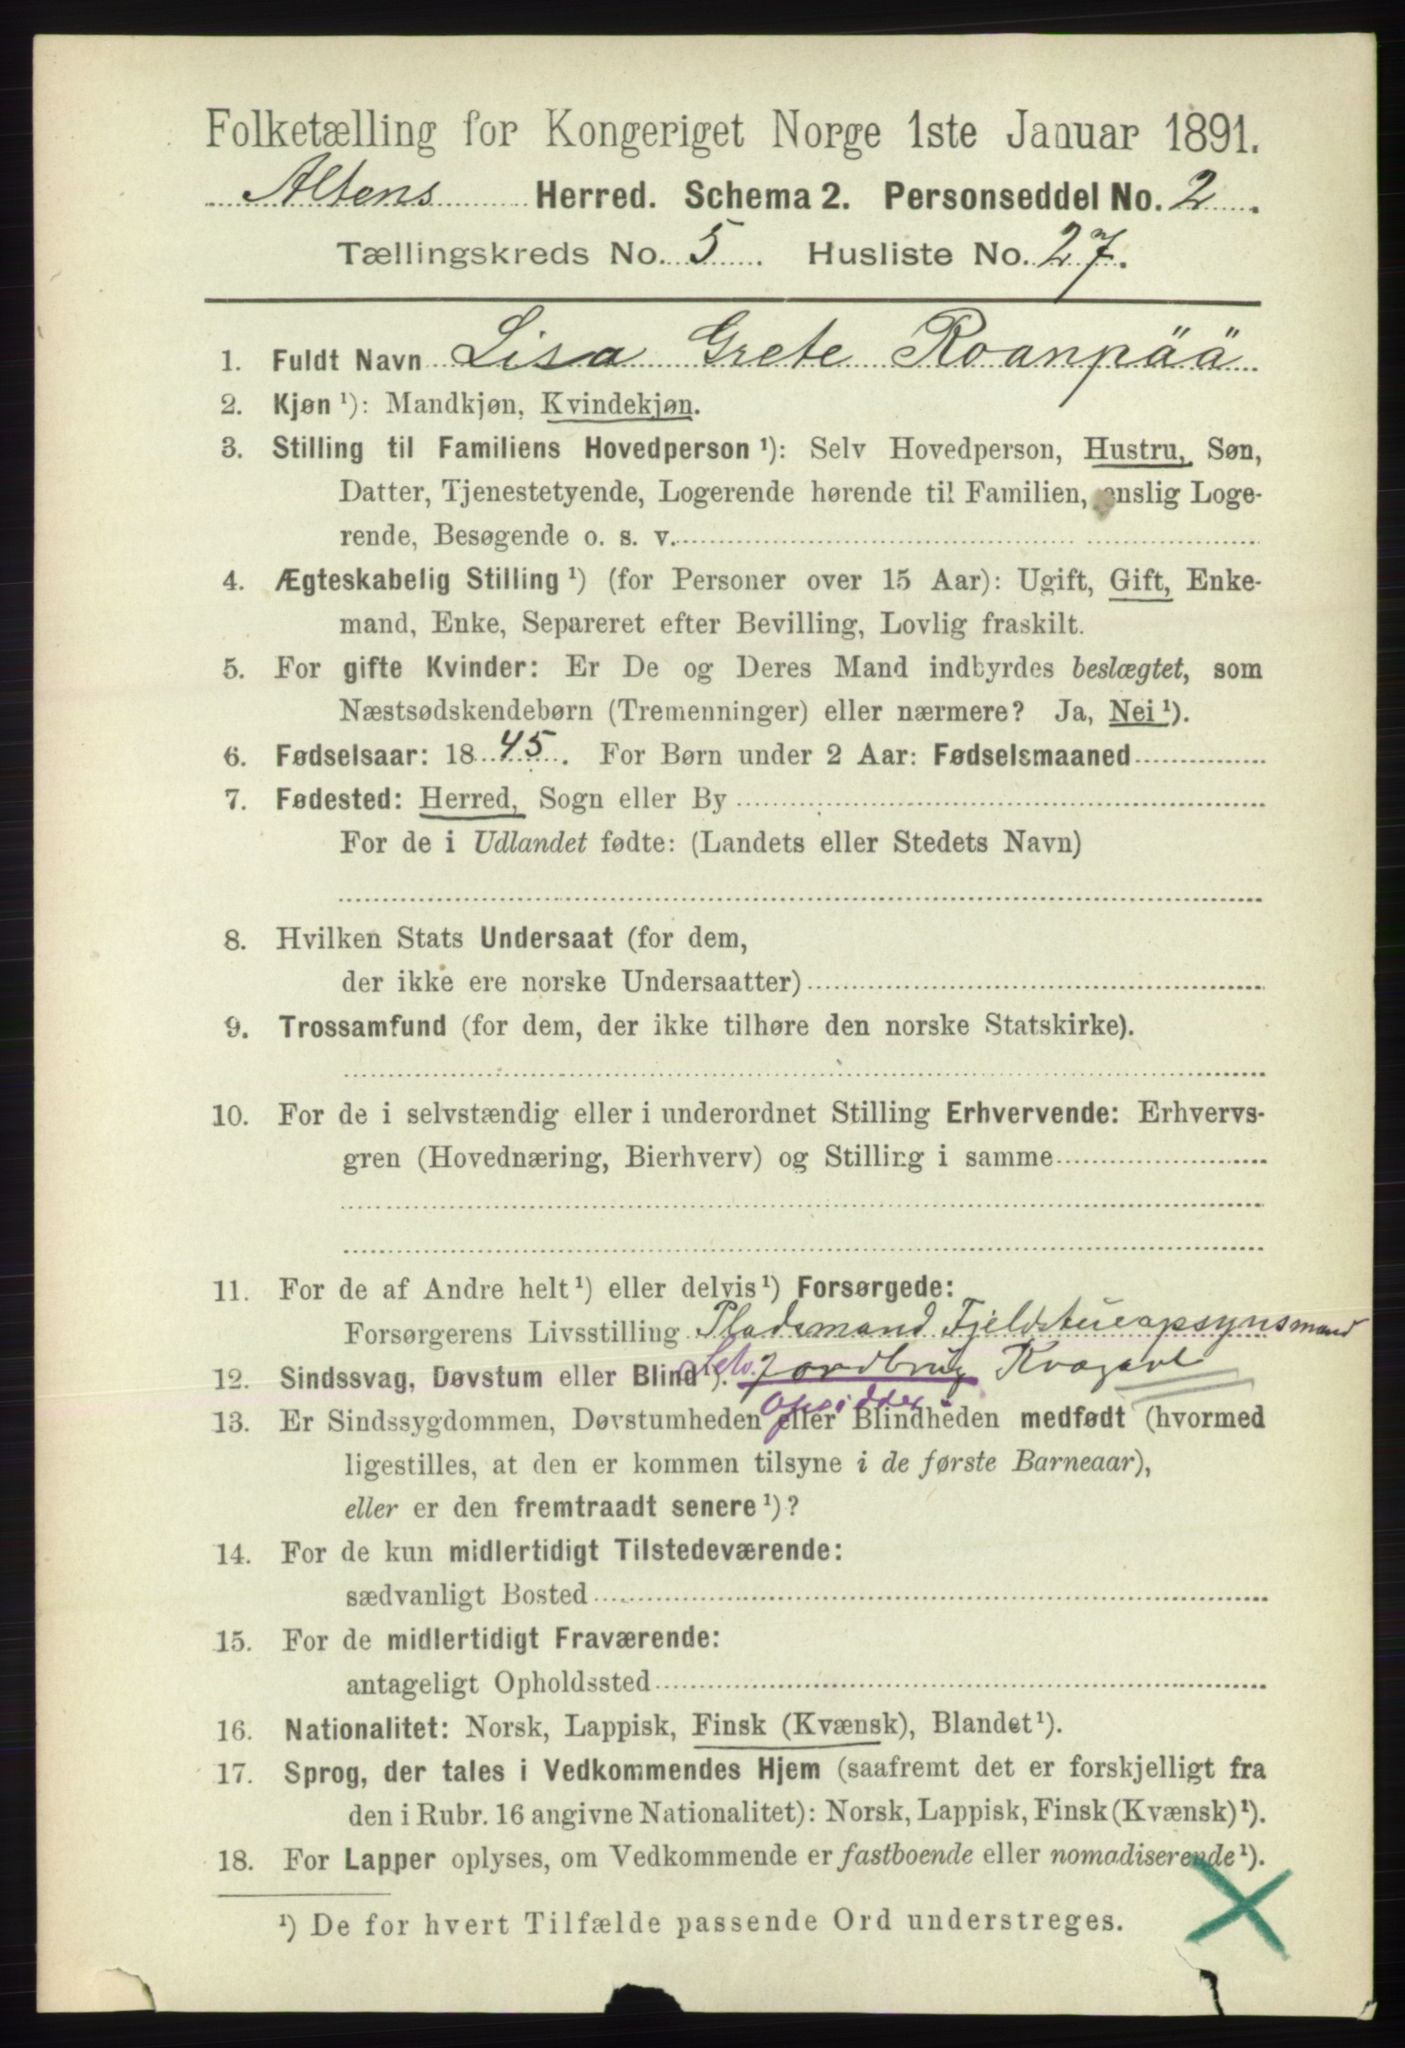 Folketælling for Kongeriget Norge 1ste Januar 1891.
Altens Herred. Schema 2. Personseddel No. 2.
Tællingskreds No. 5. Husliste No. 27.
1. Fuldt Navn Lisa Grete Roanpää
2. Kjøn ¹): Mandkjøn, Kvindekjøn.
3. Stilling til Familiens Hovedperson ¹): Selv Hovedperson, Hustru, Søn,
Datter, Tjenestetyende, Logerende hørende til Familien, enslig Loge-
rende, Besøgende o. s. v.
4. Ægteskabelig Stilling ¹) (for Personer over 15 Aar): Ugift, Gift, Enke-
mand, Enke, Separeret efter Bevilling, Lovlig fraskilt.
5. For gifte Kvinder: Er De og Deres Mand indbyrdes beslægtet, som
Næstsødskendebørn (Tremenninger) eller nærmere? Ja, Nei ¹).
6. Fødselsaar: 1845. For Børn under 2 Aar: Fødselsmaaned
7. Fødested: Herred, Sogn eller By
For de i Udlandet fødte: (Landets eller Stedets Navn)
8. Hvilken Stats Undersaat (for dem,
der ikke ere norske Undersaatter)
9. Trossamfund (for dem, der ikke tilhøre den norske Statskirke).
10. For de i selvstændig eller i underordnet Stilling Erhvervende: Erhvervs-
gren (Hovednæring, Bierhverv) og Stilling i samme
11. For de af Andre helt ¹) eller delvis ¹) Forsørgede:
Forsørgerens Livsstilling Pladsmand Fjeldstueopsynsmand
12. Sindssvag, Døvstum eller Blind ¹). Selv. Jordbrug Kvægavl
Opsidder
13. Er Sindssygdommen, Døvstumheden eller Blindheden medfødt (hvormed
ligestilles, at den er kommen tilsyne i de første Barneaar),
eller er den fremtraadt senere ¹)?
14. For de kun midlertidigt Tilstedeværende:
sædvanligt Bosted
15. For de midlertidigt Fraværende:
antageligt Opholdssted
16. Nationalitet: Norsk, Lappisk, Finsk (Kvænsk), Blandet ¹).
17. Sprog, der tales i Vedkommendes Hjem (saafremt det er forskjelligt fra
den i Rubr. 16 angivne Nationalitet): Norsk, Lappisk, Finsk (Kvænsk) ¹).
18. For Lapper oplyses, om Vedkommende er fastboende eller nomadiserende ¹).
¹) De for hvert Tilfælde passende Ord understreges.